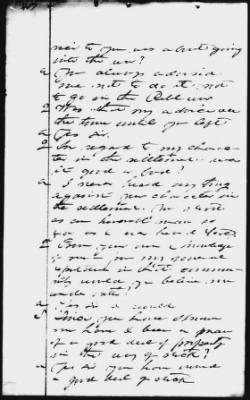 me to you was about going
into the war?
A You always advised
me not to do it, not
to go in the Rebel war
Q Was that my advice all
the time until you left?
A Yes sir.
Q In regard to my charac-
ter in the settlement was
it good or bad?
A I never heard any thing
against your character in
the settlement. You stood
as an honorable man so
far as I ever heard
Q From your own knowledge
of me & from my general
reputation in that commu-
nity would you believe me
under oath?
A Yes sir I would
Q Since you have known
me have I been a man
of a good deal of property
in the way of stock?
A Yes sir you have owned
a good deal of stock